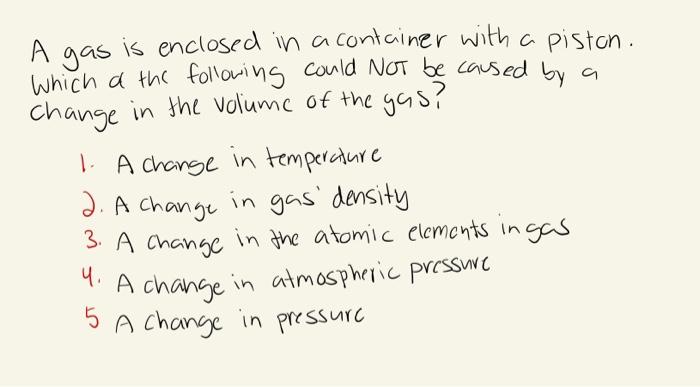 A gas is enclosed in a container with a piston.
Which of the following could NOT be caused by a
change in the volume of the gas?
1. A change in temperature
2. A change in gas' density
3. A change in the atomic elements in gas
4. A change in atmospheric pressure
5 A change in pressure